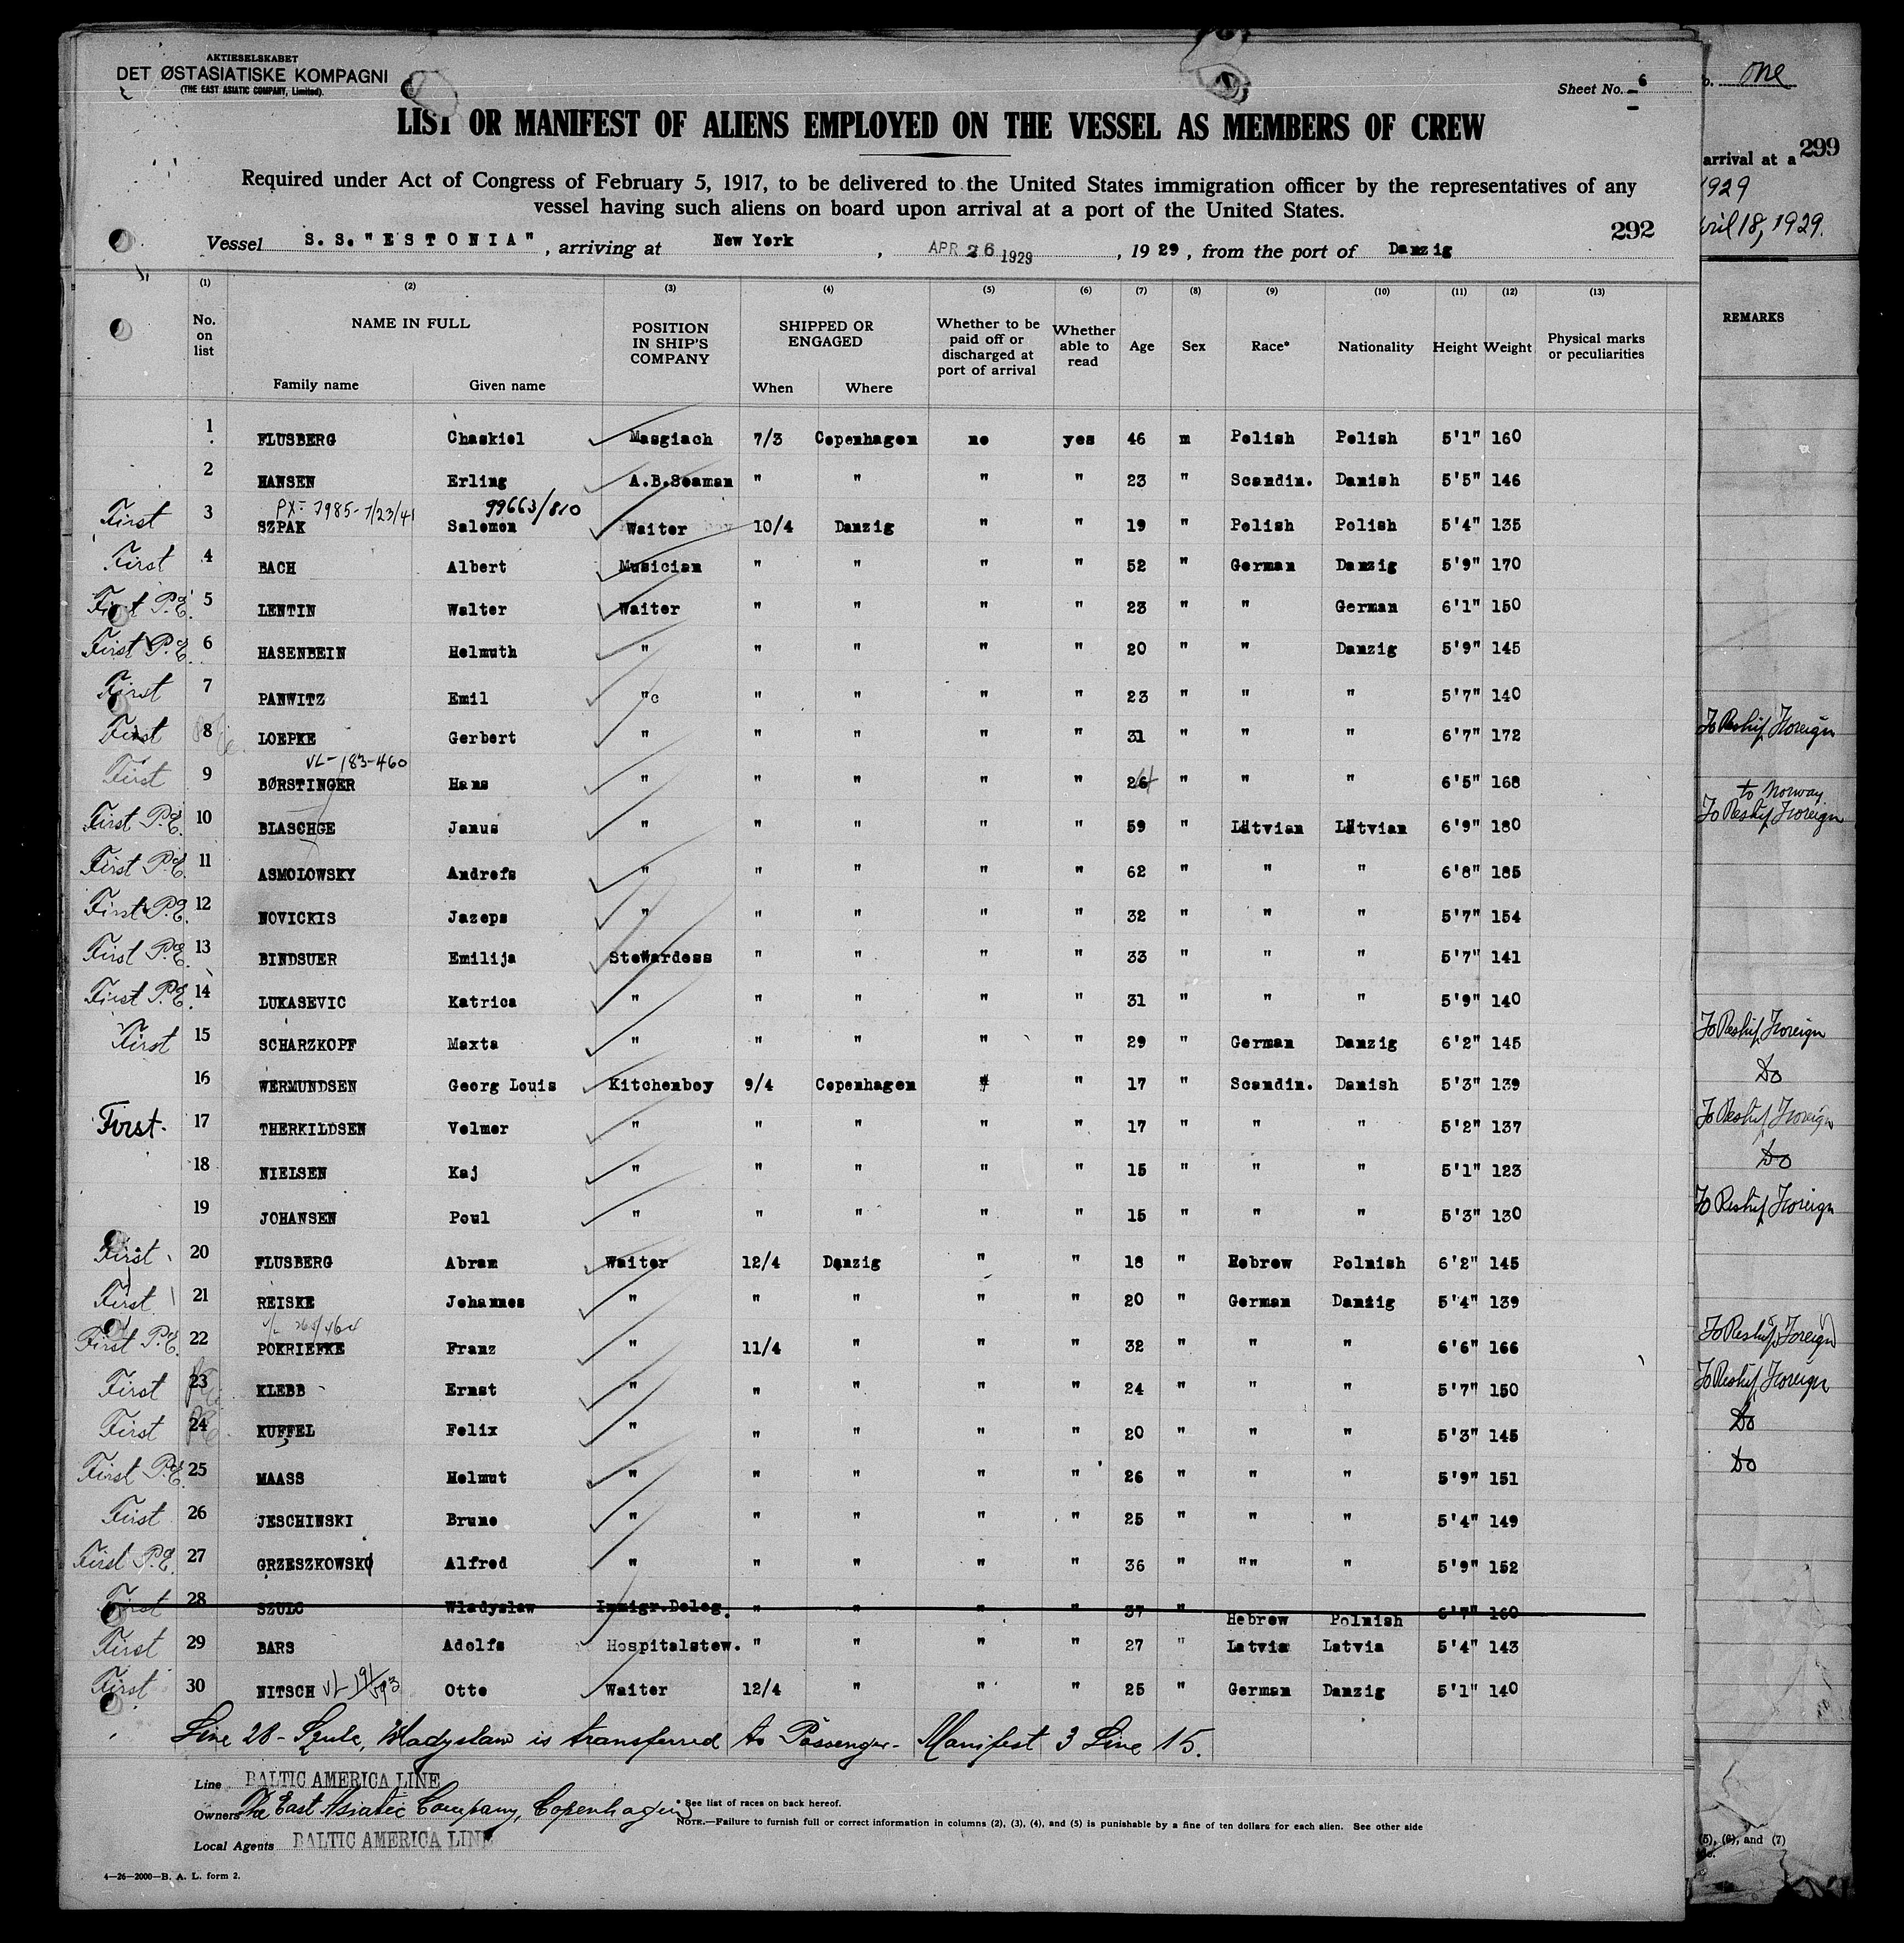 AKTIESELSKABET
DET ØSTASIATISKE KOMPAGNI
(THE EAST ASIATIC COMPANY, Limited).
Sheet No. 6
LIST OR MANIFEST OF ALIENS EMPLOYED ON THE VESSEL AS MEMBERS OF CREW
Required under Act of Congress of February 5, 1917, to be delivered to the United States immigration officer by the representatives of any
vessel having such aliens on board upon arrival at a port of the United States.
292
Vessel S. S. "ESTONIA", arriving at New York, APR 26 1929, 1929, from the port of Danzig
(1) (2) (3) (4) (5) (6) (7) (8) (9) (10) (11) (12) (13)
No. on list NAME IN FULL Family name Given name POSITION IN SHIP'S COMPANY SHIPPED OR ENGAGED When Where Whether to be paid off or discharged at port of arrival Whether able to read Age Sex Race* Nationality Height Weight Physical marks or peculiarities
1 FLUSBERG Chaskiel Masgiach 7/3 Copenhagen no yes 46 m Polish Polish 5'1" 160
2 HANSEN Erling A.B.Seaman " " " " 23 " Scandin. Danish 5'5" 146
PX- 7985-7/23/41 99663/810
First 3 SZPAK Salomon Waiter 10/4 Danzig " " 19 " Polish Polish 5'4" 135
First 4 BACH Albert Musician " " " " 52 " German Danzig 5'9" 170
First P.E. 5 LENTIN Walter Waiter " " " " 23 " " German 6'1" 150
First P.E. 6 HASENBEIN Helmuth " " " " " 20 " " Danzig 5'9" 145
First 7 PANWITZ Emil " " " " " 23 " " " 5'7" 140
First 8 LOEPKE Gerbert " " " " " 31 " " " 6'7" 172
VL-183-460
First 9 BØRSTINGER Hans " " " " " 26 " " " 6'5" 168
First P.E. 10 BLASCHGE Janus " " " " " 59 " Latvian Latvian 6'9" 180
First P.E. 11 ASMOLOWSKY Andrefs " " " " " 62 " " " 6'8" 185
First P.E. 12 NOVICKIS Jazeps " " " " " 32 " " " 5'7" 154
First P.E. 13 BINDSUER Emilija Stewardess " " " " 33 " " " 5'7" 141
First P.E. 14 LUKASEVIC Katrica " " " " " 31 " " " 5'9" 140
First 15 SCHARZKOPF Maxta " " " " " 29 " German Danzig 6'2" 145
16 WERMUNDSEN Georg Louis Kitchenboy 9/4 Copenhagen " " 17 " Scandin. Danish 5'3" 139
First. 17 THERKILDSEN Volmer " " " " " 17 " " " 5'2" 137
18 NIELSEN Kaj " " " " " 15 " " " 5'1" 123
19 JOHANSEN Poul " " " " " 15 " " " 5'3" 130
First 20 FLUSBERG Abram Waiter 12/4 Danzig " " 18 " Hebrew Polnish 6'2" 145
First 21 REISKE Johannes " " " " " 20 " German Danzig 5'4" 139
First P.E. 22 POKRIEFKE Franz " 11/4 " " " 32 " " " 6'6" 166
First 23 KLEBB Ernst " " " " " 24 " " " 5'7" 150
First 24 KUFFEL Felix " " " " " 20 " " " 5'3" 145
First P.E. 25 MAASS Helmut " " " " " 26 " " " 5'9" 151
First 26 JESCHINSKI Bruno " " " " " 25 " " " 5'4" 149
First P.E. 27 GRZESZKOWSKI Alfred " " " " " 36 " "" " 5'9" 152
First 28 SZULC Wladyslaw Immigr.Deleg. " " " " 37 " Hebrew Polnish 6'7" 160
First 29 BARS Adolfs Hospitalstew. " " " " 27 " Latvia Latvia 5'4" 143
First 30 NITSCH VL 191/193 Otto Waiter 12/4 " " " 25 " German Danzig 5'1" 140
Line 28 - Szulc, Wladyslaw is transferred to Passenger - Manifest 3 Line 15.
Line BALTIC AMERICA LINE
Owners The East Asiatic Company, Copenhagen
* See list of races on back hereof.
NOTE.—Failure to furnish full or correct information in columns (2), (3), (4), and (5) is punishable by a fine of ten dollars for each alien. See other side
Local Agents BALTIC AMERICA LINE
4—26—2000—B. A. L. form 2.
one
299
arrival at a
1929
April 18, 1929.
REMARKS
To Reship Foreign
to Norway
To Reship Foreign
To Reship Foreign
Do
To Reship Foreign
Do
To Reship Foreign
To Reship Foreign
To Reship Foreign
Do
Do
(5), (6), and (7)